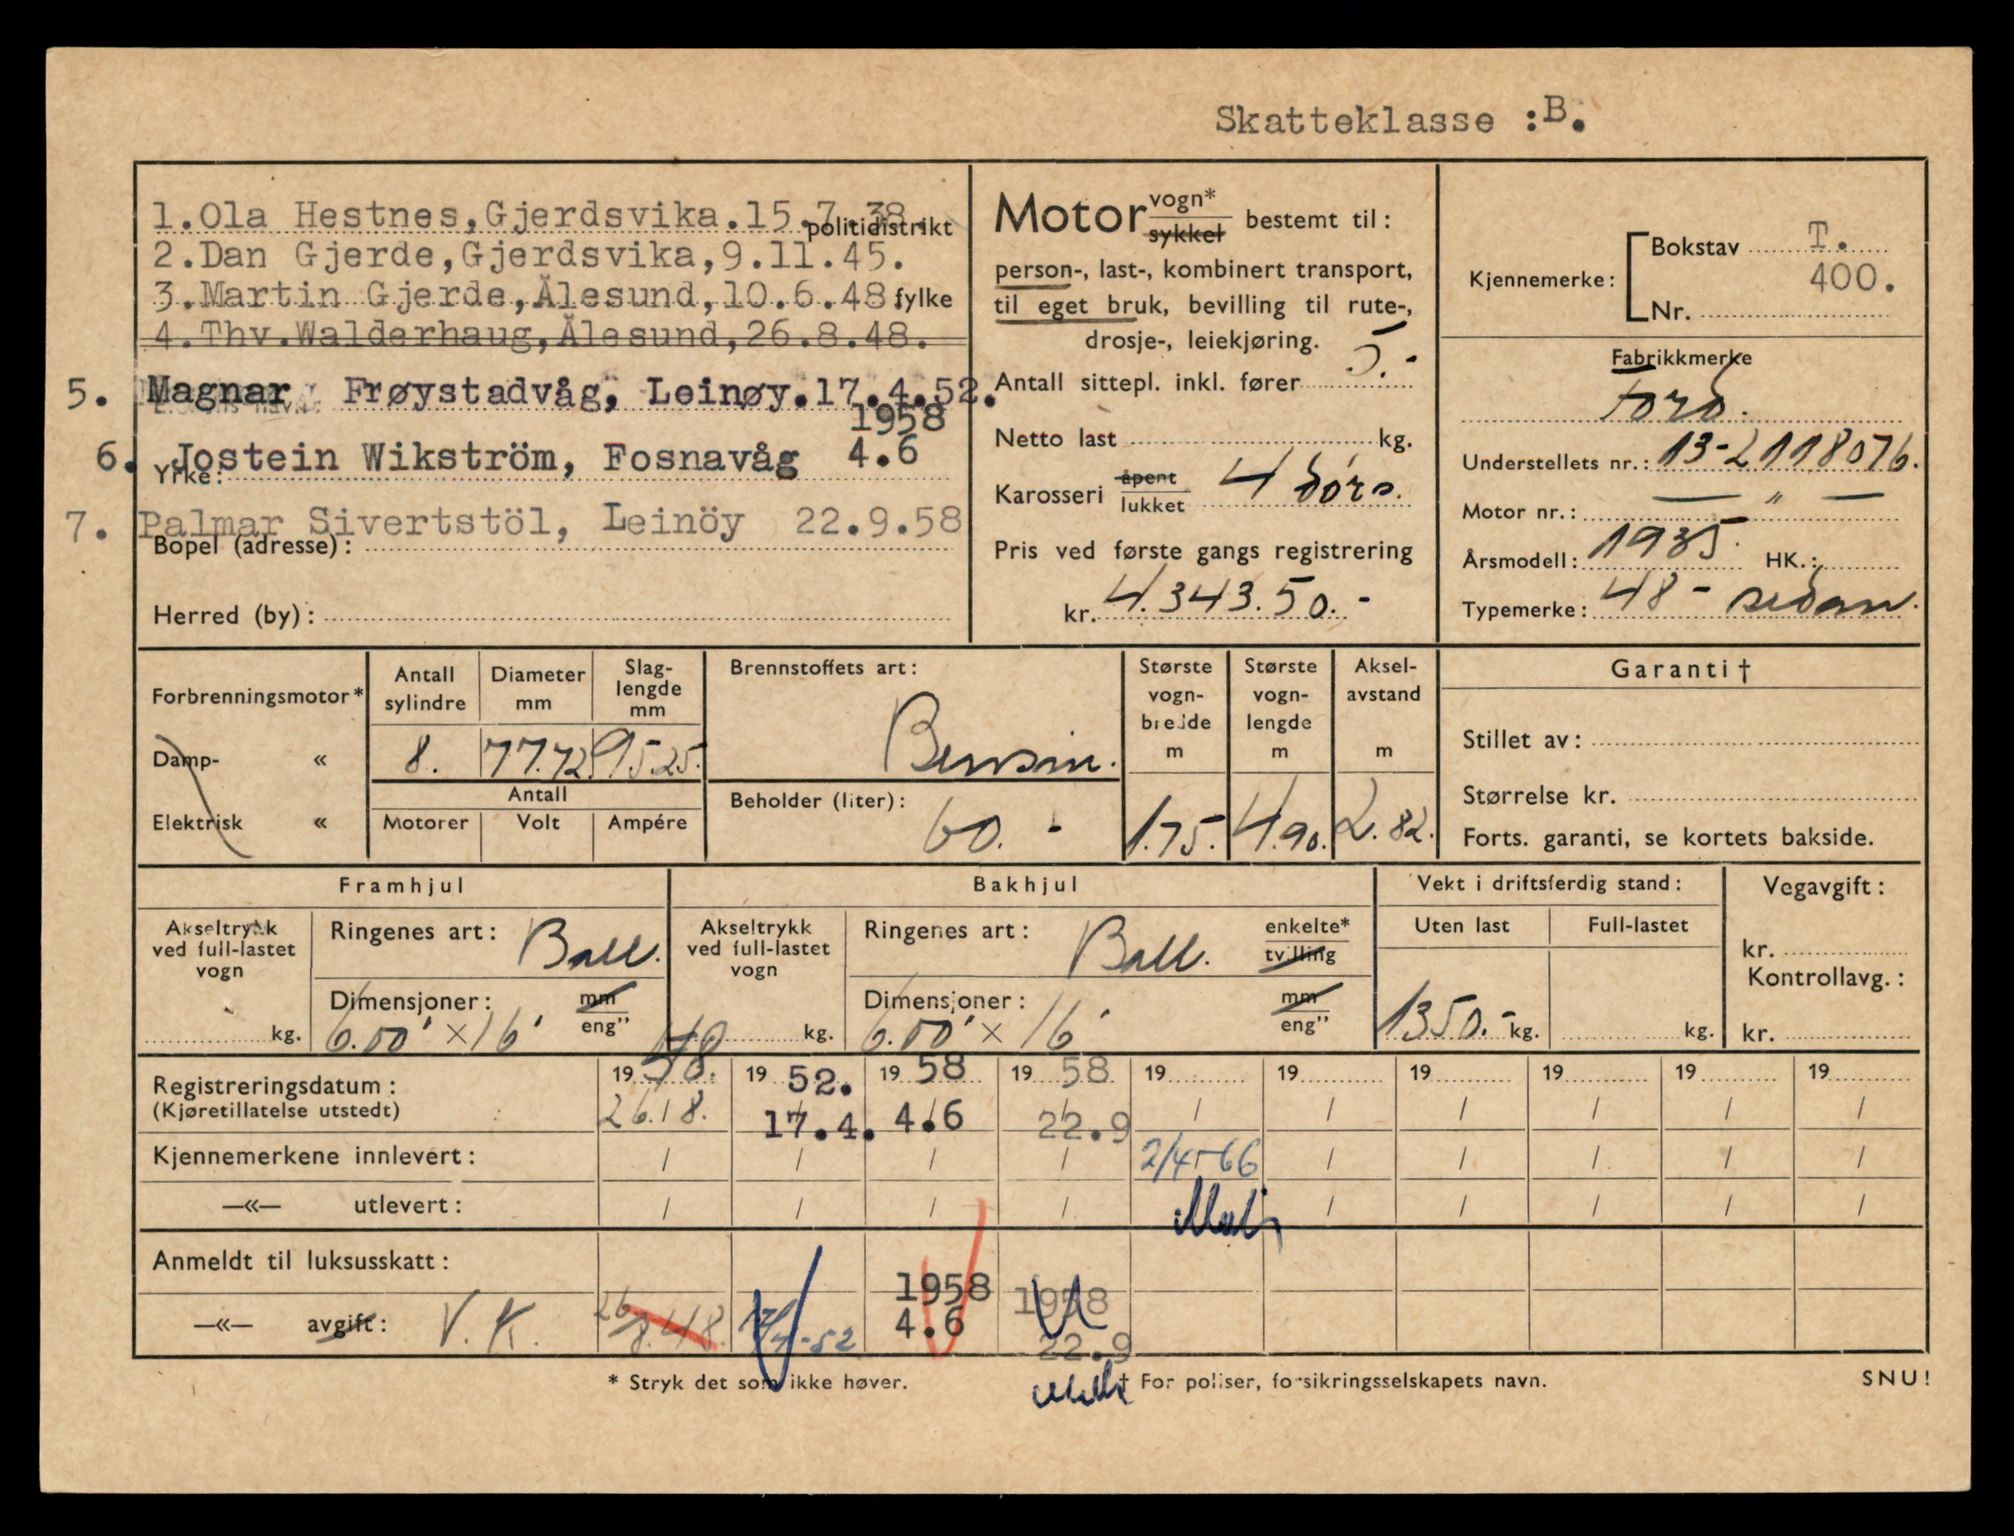 Skatteklasse :B.
1.Ola Hestnes,Gjerdsvika.15.7.38.
politidistrikt
2.Dan Gjerde,Gjerdsvika,9.11.45.
3.Martin Gjerde,Ålesund,10.6.48.
fylke
4.Thv.Walderhaug,Ålesund,26.8.48.
5. Magnar Frøystadvåg, Leinøy.17.4.52.
1958
6. Jostein Wikström, Fosnavåg 4.6
Yrke:
7. Palmar Sivertstöl, Leinöy 22.9.58
Bopel (adresse):
Herred (by):
Motor vogn* sykkel bestemt til:
person-, last-, kombinert transport,
til eget bruk, bevilling til rute-,
drosje-, leiekjøring.
Antall sittepl. inkl. fører 5.-
Netto last kg.
Karosseri åpent lukket 4 dørs.
Pris ved første gangs registrering
kr. 4.343.50.-
Kjennemerke: Bokstav T.
Nr. 400.
Fabrikkmerke
Ford.
Understellets nr.: 13-2118076.
Motor nr.: — " —
Årsmodell: 1935. HK.:
Typemerke: 48 - sedan.
Forbrenningsmotor*
Damp- «
Elektrisk «
Antall sylindre
8.
Diameter mm
77.72
Slag-lengde mm
95.25.
Antall
Motorer Volt Ampére
Brennstoffets art:
Bensin.
Beholder (liter):
60.-
Største vogn-bredde m
1.75.
Største vogn-lengde m
4.90.
Aksel-avstand m
2.82.
Garanti †
Stillet av:
Størrelse kr.
Forts. garanti, se kortets bakside.
Framhjul
Akseltrykk ved full-lastet vogn
kg.
Ringenes art: Ball.
Dimensjoner: mm eng”
6.00' × 16'
Bakhjul
Akseltrykk ved full-lastet vogn
kg.
Ringenes art: Ball. enkelte* tvilling
Dimensjoner: mm eng”
6.00' × 16'
Vekt i driftsferdig stand:
Uten last Full-lastet
1350.- kg. kg.
Vegavgift:
kr.
Kontrollavg.:
kr.
Registreringsdatum: 19 48. 19 52. 19 58 19 58 19 19 19 19 19 19
(Kjøretillatelse utstedt) 26/8. 17.4. 4.6 22.9 / / / / / /
Kjennemerkene innlevert: / / / / 2/4-66 / / / / /
—«— utlevert: / / / / / / / / /
Anmeldt til luksusskatt:
1958 1958
—«— avgift: V.K. 26/8.48. 17/4-52 4.6 22.9
* Stryk det som ikke høver.
† For poliser, forsikringsselskapets navn.
SNU!